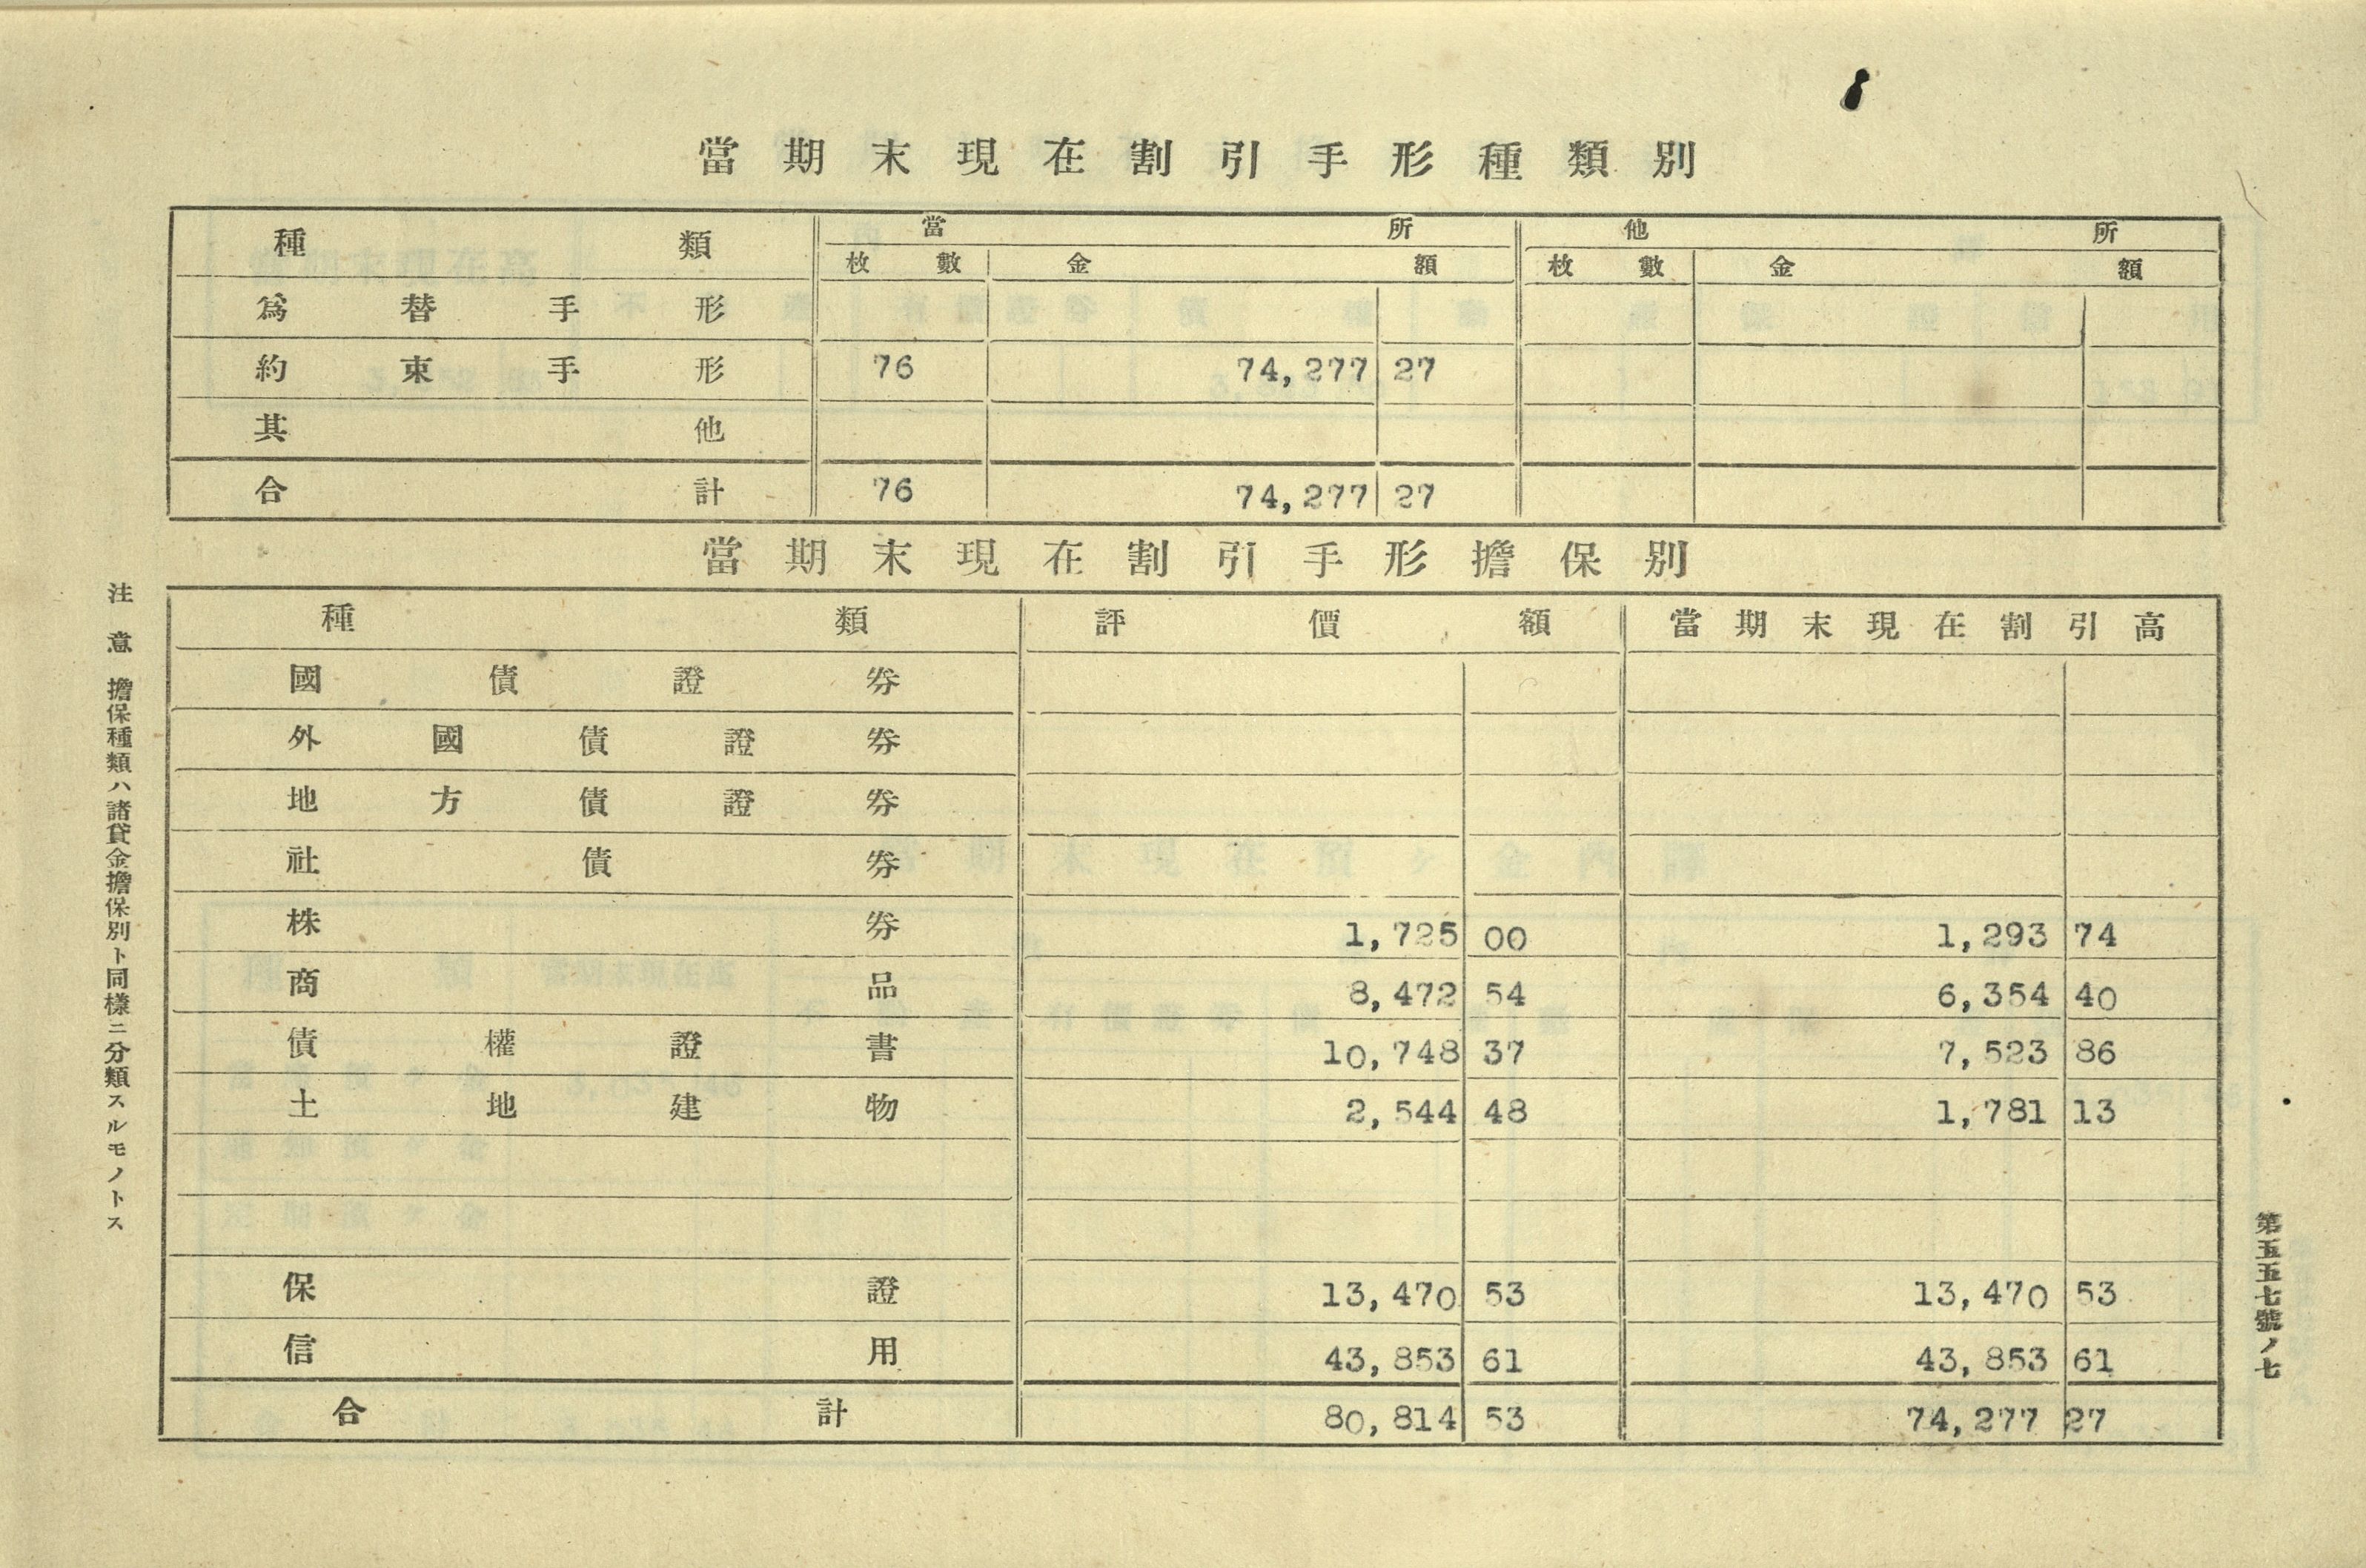 當期末現在割引手形種類別
種類 當所 他所
枚數 金額 枚數 金額
爲替手形
約束手形 76 74,277 27
其他
合計 76 74,277 27
當期末現在割引手形擔保別
種類 評價額 當期末現在割引高
國債證券
外國債證券
地方債證券
社債券
株券 1,725 00 1,293 74
商品 8,472 54 6,354 40
債權證書 10,748 37 7,523 86
土地建物 2,544 48 1,781 13
保證 13,470 53 13,470 53
信用 43,853 61 43,853 61
合計 80,814 53 74,277 27
注意 擔保種類ハ諸貸金擔保別ト同樣ニ分類スルモノトス
第五五七號ノ七